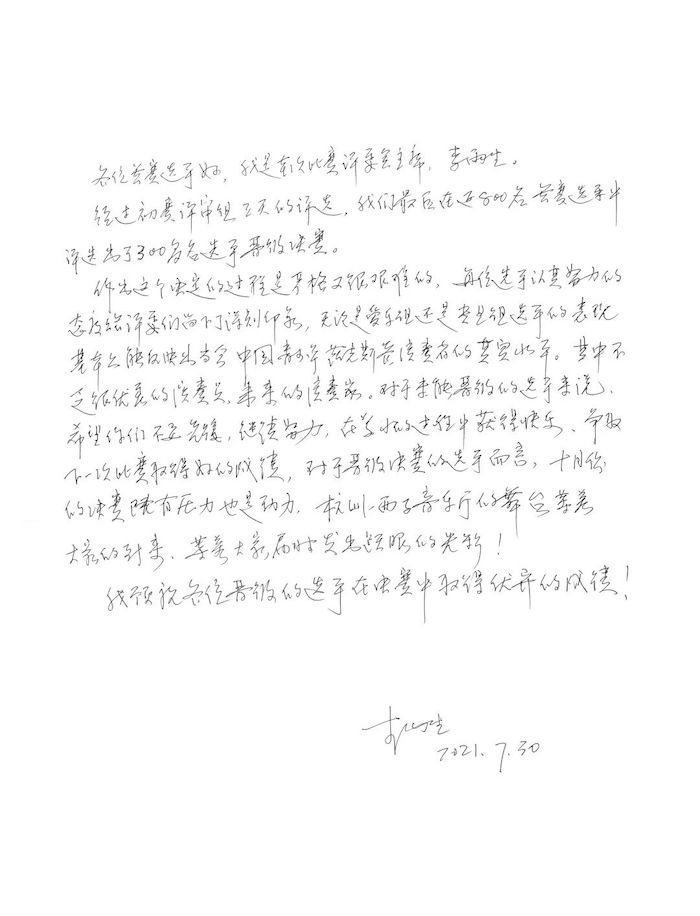 各位参赛选手好，我是本次比赛评委会主席，李雨生。
经过初赛评审组三天的评选，我们最后在近800名参赛选手中
评选出了300多名选手晋级决赛。
作出这个决定的过程是严格又很艰难的，每位选手认真努力的
态度给评委们留下了深刻印象，无论是爱乐组还是专业组选手的表现
基本上能反映出当今中国青少年萨克斯管演奏者的真实水平。其中不
乏很优秀的演奏员、未来的演奏家。对于未能晋级的选手来说，
希望你们不要气馁，继续努力，在学习的过程中获得快乐、争取
下一次比赛取得好的成绩，对于晋级决赛的选手而言，十月份
的决赛既有压力也是动力，杭州—西子音乐厅的舞台等着
大家的到来、等着大家届时发出耀眼的光彩！
我预祝各位晋级的选手在决赛中取得优异的成绩！
李雨生
2021.7.30